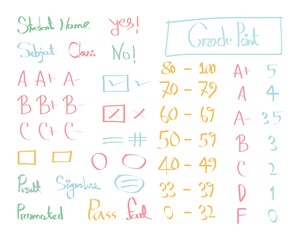 Student Name
yes!
Subject
Class
No!
A A+ A-
B B+ B-
C C+ C-
Result
Signature
Promoted
Pass
fail
Grade Point
80 - 100 A+ 5
70 - 79 A 4
60 - 69 A- 3.5
50 - 59 B 3
40 - 49 C 2
33 - 39 D 1
0 - 32 F 0